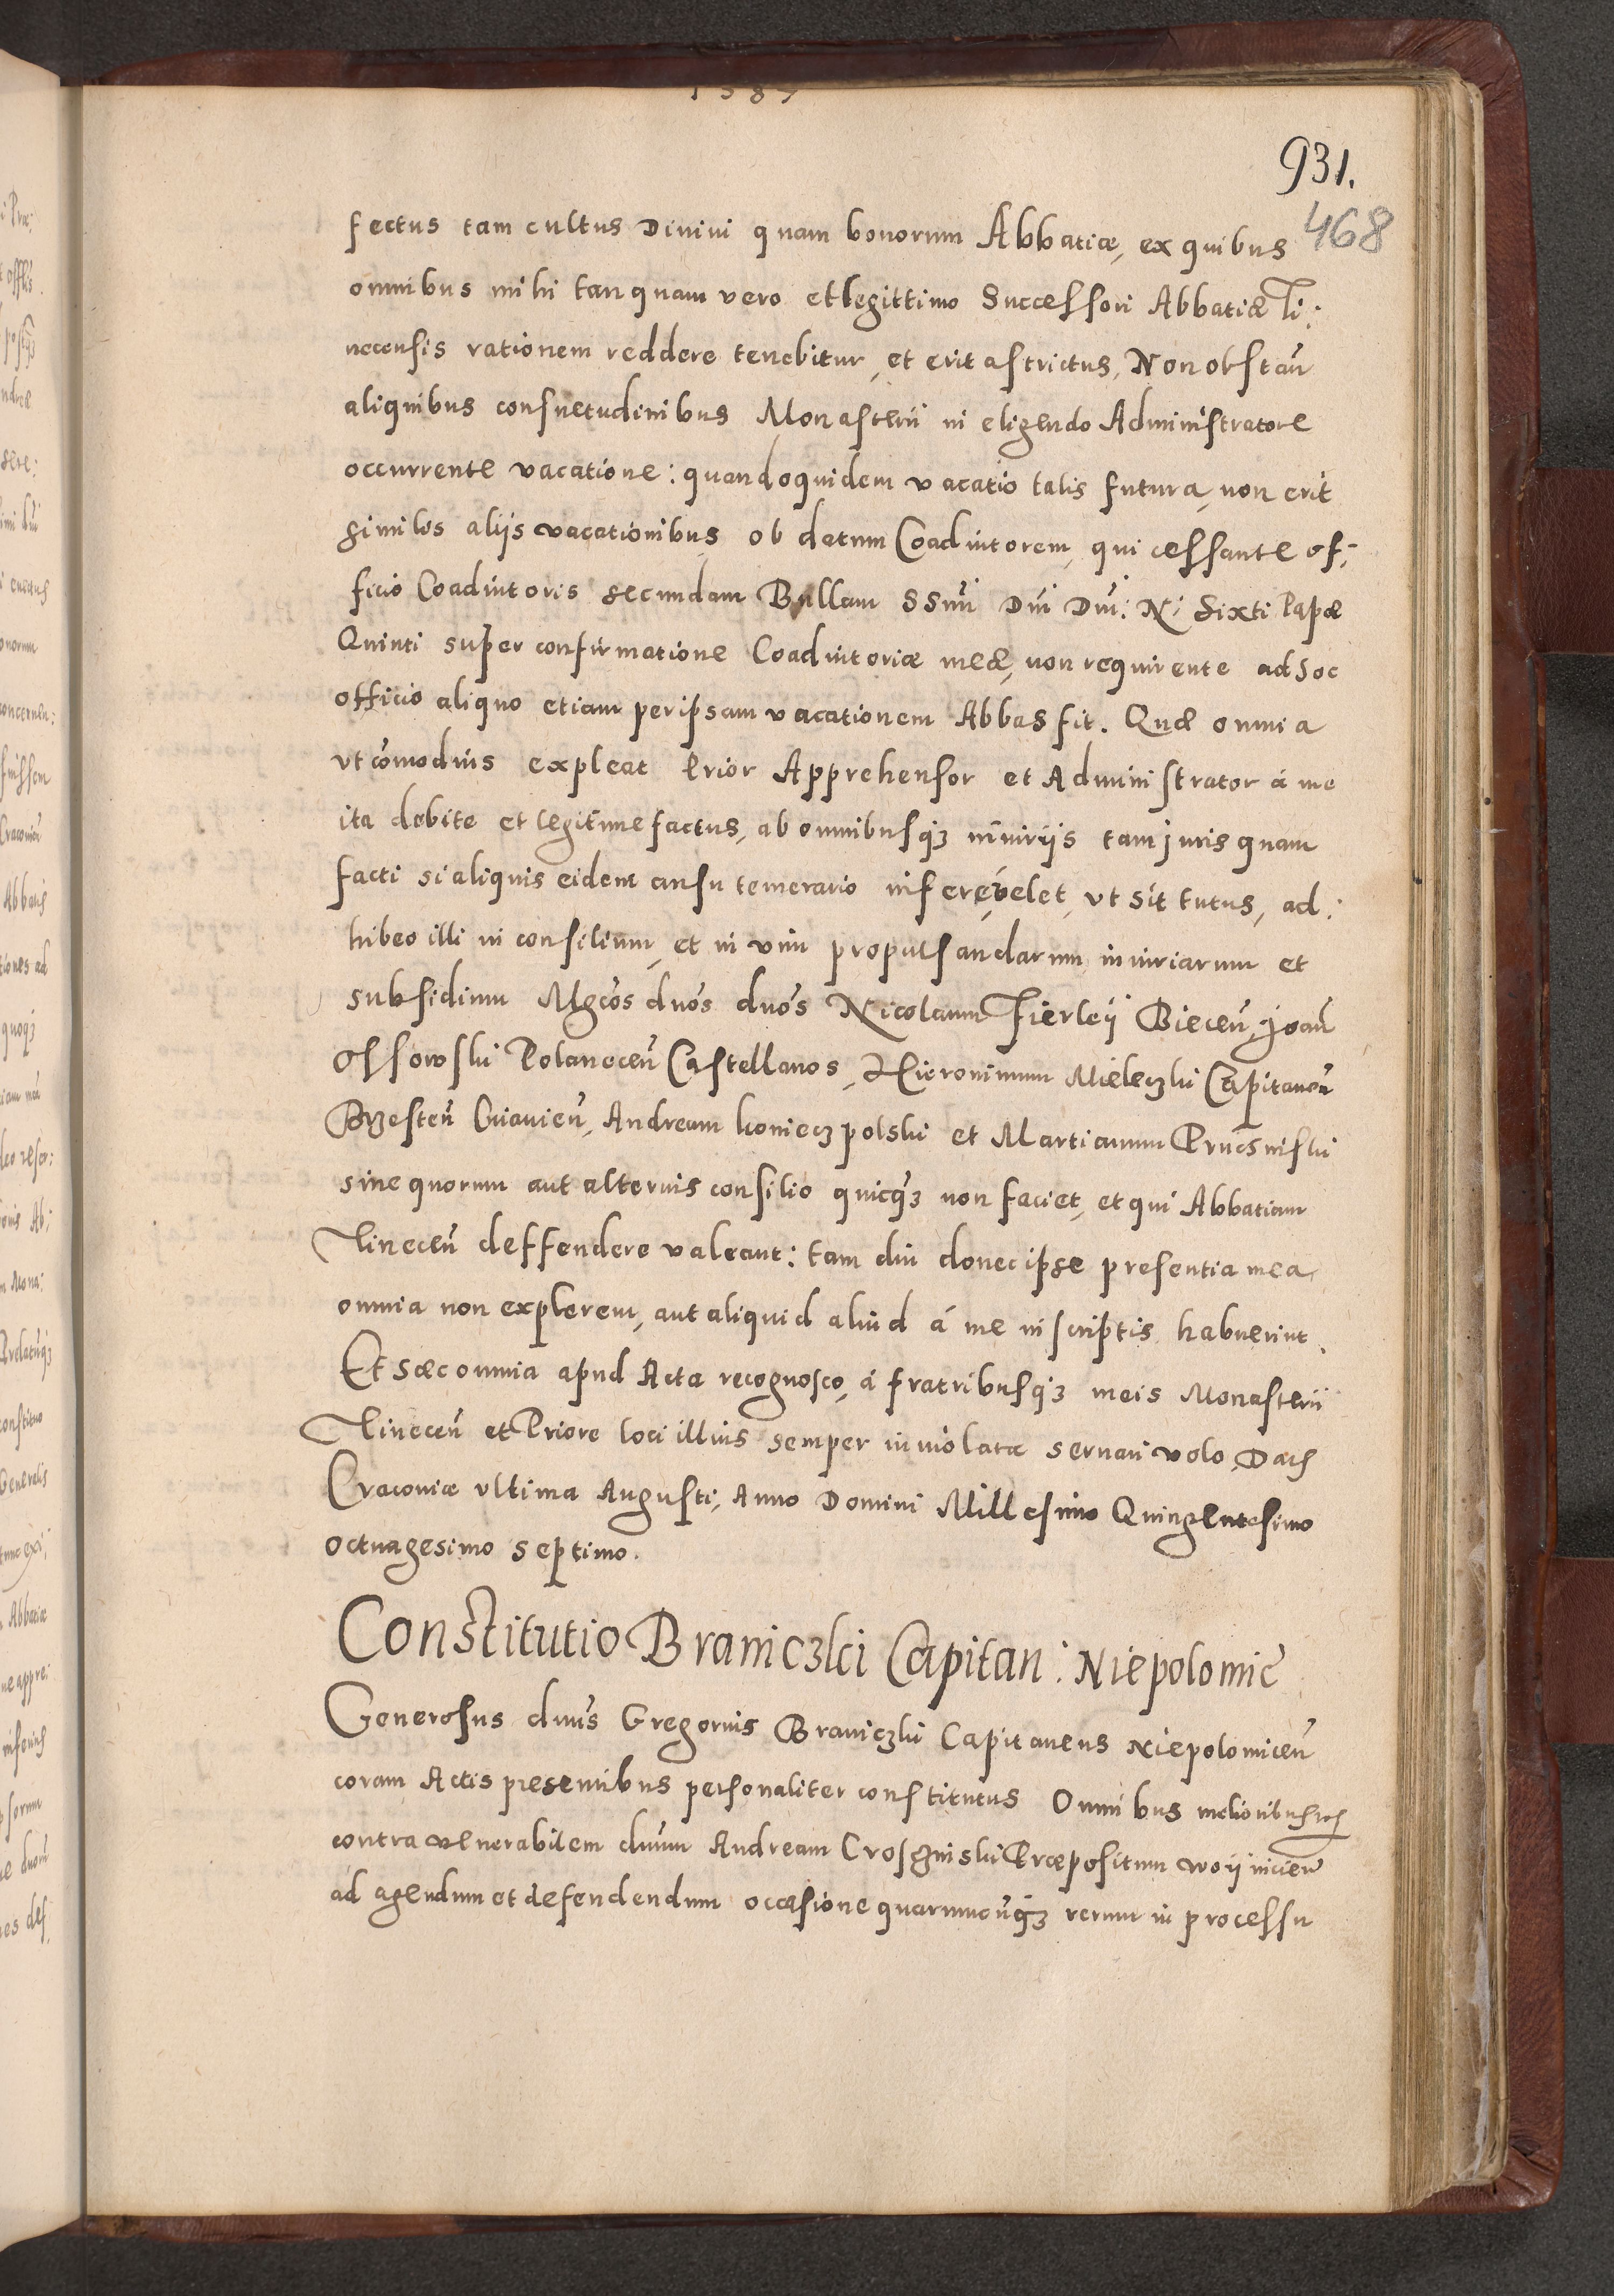 1587
931.
468
fectus tam cultus Divini quam bonorum Abbatiæ, ex quibus
omnibus mihi tanquam vero et legittimo Successori Abbatiæ Ti:
necensis rationem reddere tenebitur, et erit astrictus, Non obstan̄
aliquibus consuetudinibus Monasterii in eligendo Administratore
occurrente vacatione: quandoquidem vacatio talis futura, non erit
similis aliis vacationibus, ob datum Coadiutorem, qui cessante of:
ficio Coadiutoris secundam Bullam SSmi Dni Dni: N: Sixti Papæ
Quinti super confirmatione Coadiutoriæ meæ, non requirente ad hoc
officio aliquo etiam per ipsam vacationem Abbas fit. Quæ omnia
vt com̄odius expleat Prior Apprehensor et Administrator á me
ita debite et legitime factus, ab omnibusq₃ iniuriis tam juris quam
facti si aliquis eidem ausu temerario inferre velet, vt sit tutus, ad:
hibeo illi in consilium, et in vim propulsandarum iniuriarum et
subsidium Mgcos dnos dnos Nicolaum Fierleÿ Biecen̄, Joan̄
Ossowski Polanecen̄ Castellanos, Hieronimum Mieleczki Capitaneū
Brzesten̄ Cuiavien̄, Andream koniecz polski et Martianum
sine quorum aut alterius consilio quicq₃ non faciet, et qui Abbatiam
Tinecen̄ deffendere valeant: tam diu donec ipse presentia mea
omnia non explerem, aut aliquid aliud á me in scriptis habuerint.
Et hæc omnia apud Acta recognosco, á fratribusq₃ meis Monasterii
Tinecen̄ et Priore loci illius semper inviolata servari volo, Datt
Cracoviæ vltima Augusti, Anno Domini Millesimo Quingentesimo
octuagesimo septimo.
Constitutio Braniczki Capitan: Niepolomic̄
Generosus dnus Gregorius Braniczki Capitaneus Niepolomicen̄
coram Actis presentibus personaliter constitutus Omnibus melioribus
contra venerabilem dnum Andream Præpositum
ad agendum et defendendum occasione quarumcunq₃ rerum in processu